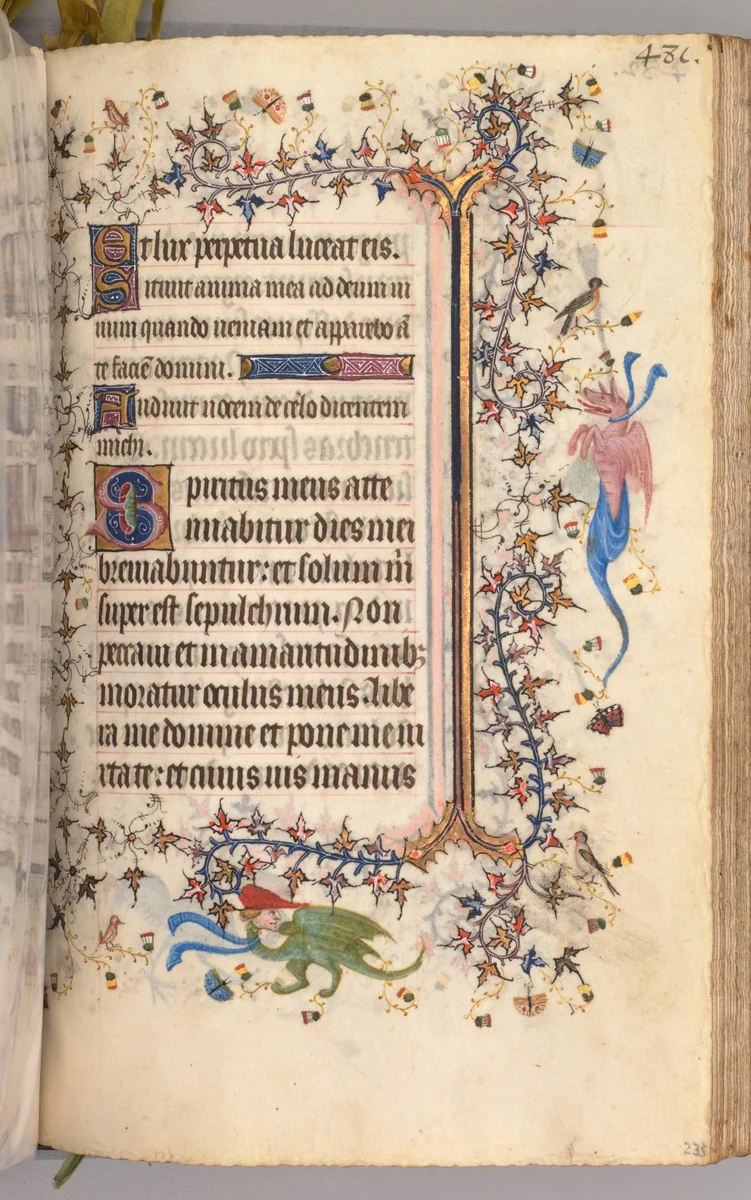 486.
Et lux perpetua luceat eis.
Sitiuit anima mea ad deum ui
uum quando ueniam et apparebo ā
te faciē domini.
Audiui uocem de celo dicentem
michi.
Spiritus meus atte
nuabitur dies mei
breuiabuntur: et solum m̄
super est sepulchrum. Non
peccaui et in amaritudinibꝫ
moratur oculus meus. Libe
ra me domine et pone me iu
xta te: et cuius uis manus
235